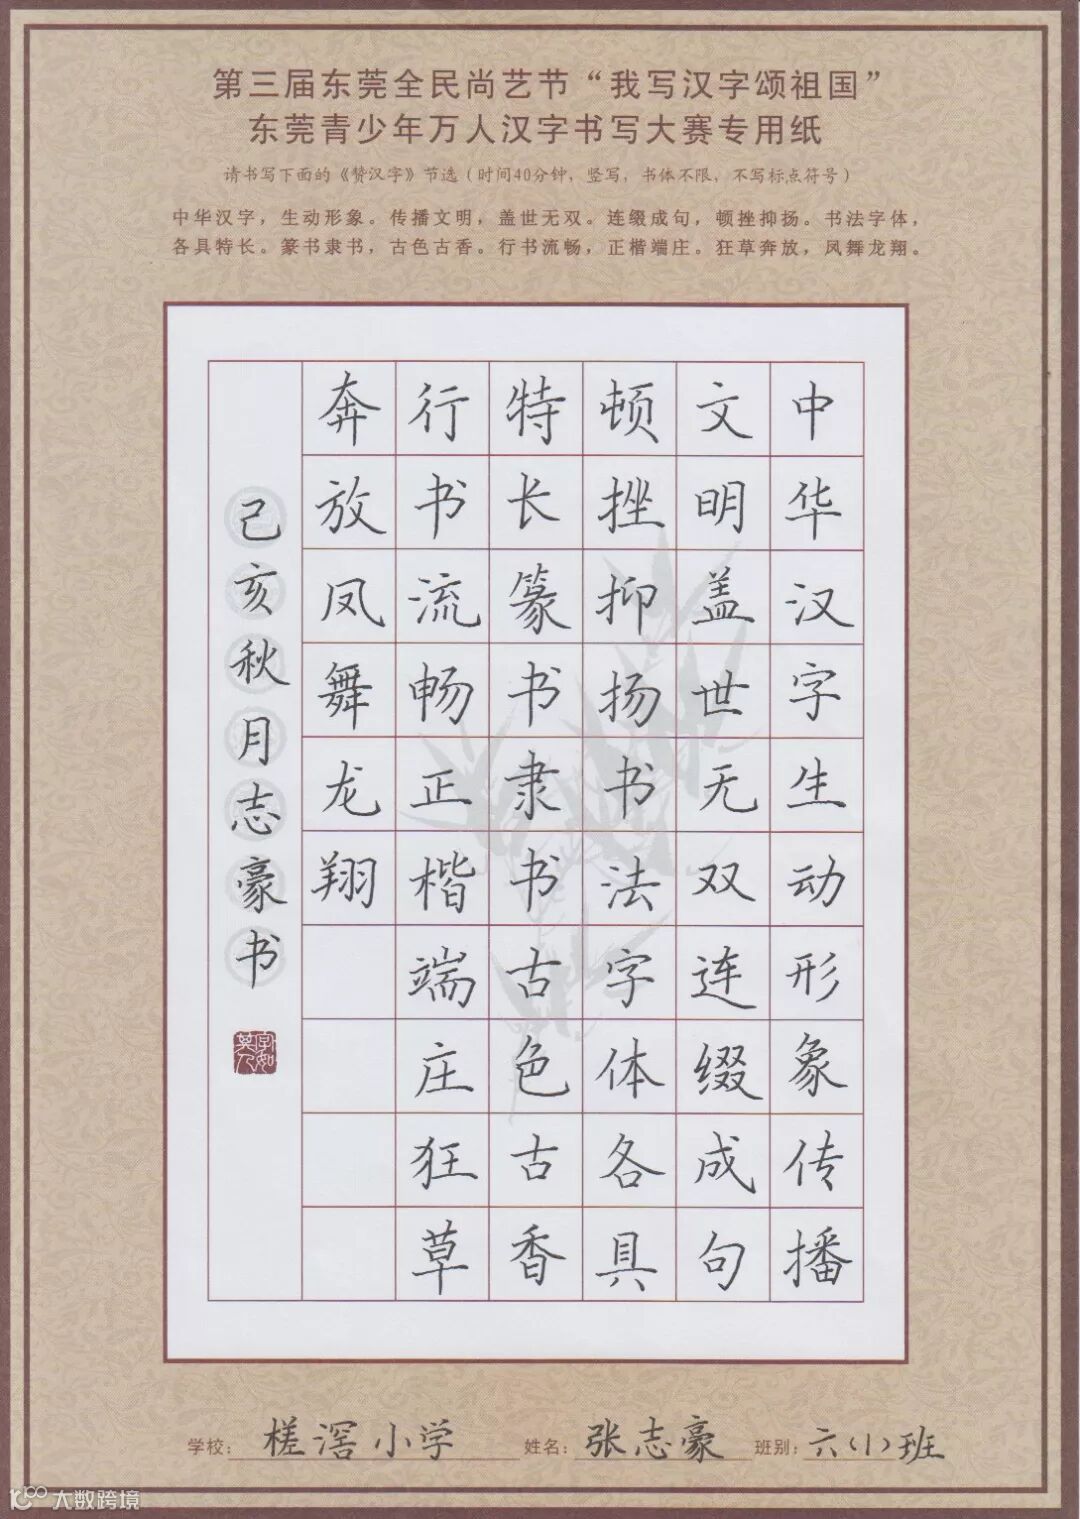 第三届东莞全民尚艺节“我写汉字颂祖国”
东莞青少年万人汉字书写大赛专用纸
请书写下面的《赞汉字》节选（时间40分钟，竖写，书体不限，不写标点符号）
中华汉字，生动形象。传播文明，盖世无双。连缀成句，顿挫抑扬。书法字体，
各具特长。篆书隶书，古色古香。行书流畅，正楷端庄。狂草奔放，凤舞龙翔。
中华汉字生动形象传播
文明盖世无双连缀成句
顿挫抑扬书法字体各具
特长篆书隶书古色古香
行书流畅正楷端庄狂草
奔放凤舞龙翔
己亥秋月志豪书
字如其人
学校：槎滘小学 姓名：张志豪 班别：六（1）班
大数跨境